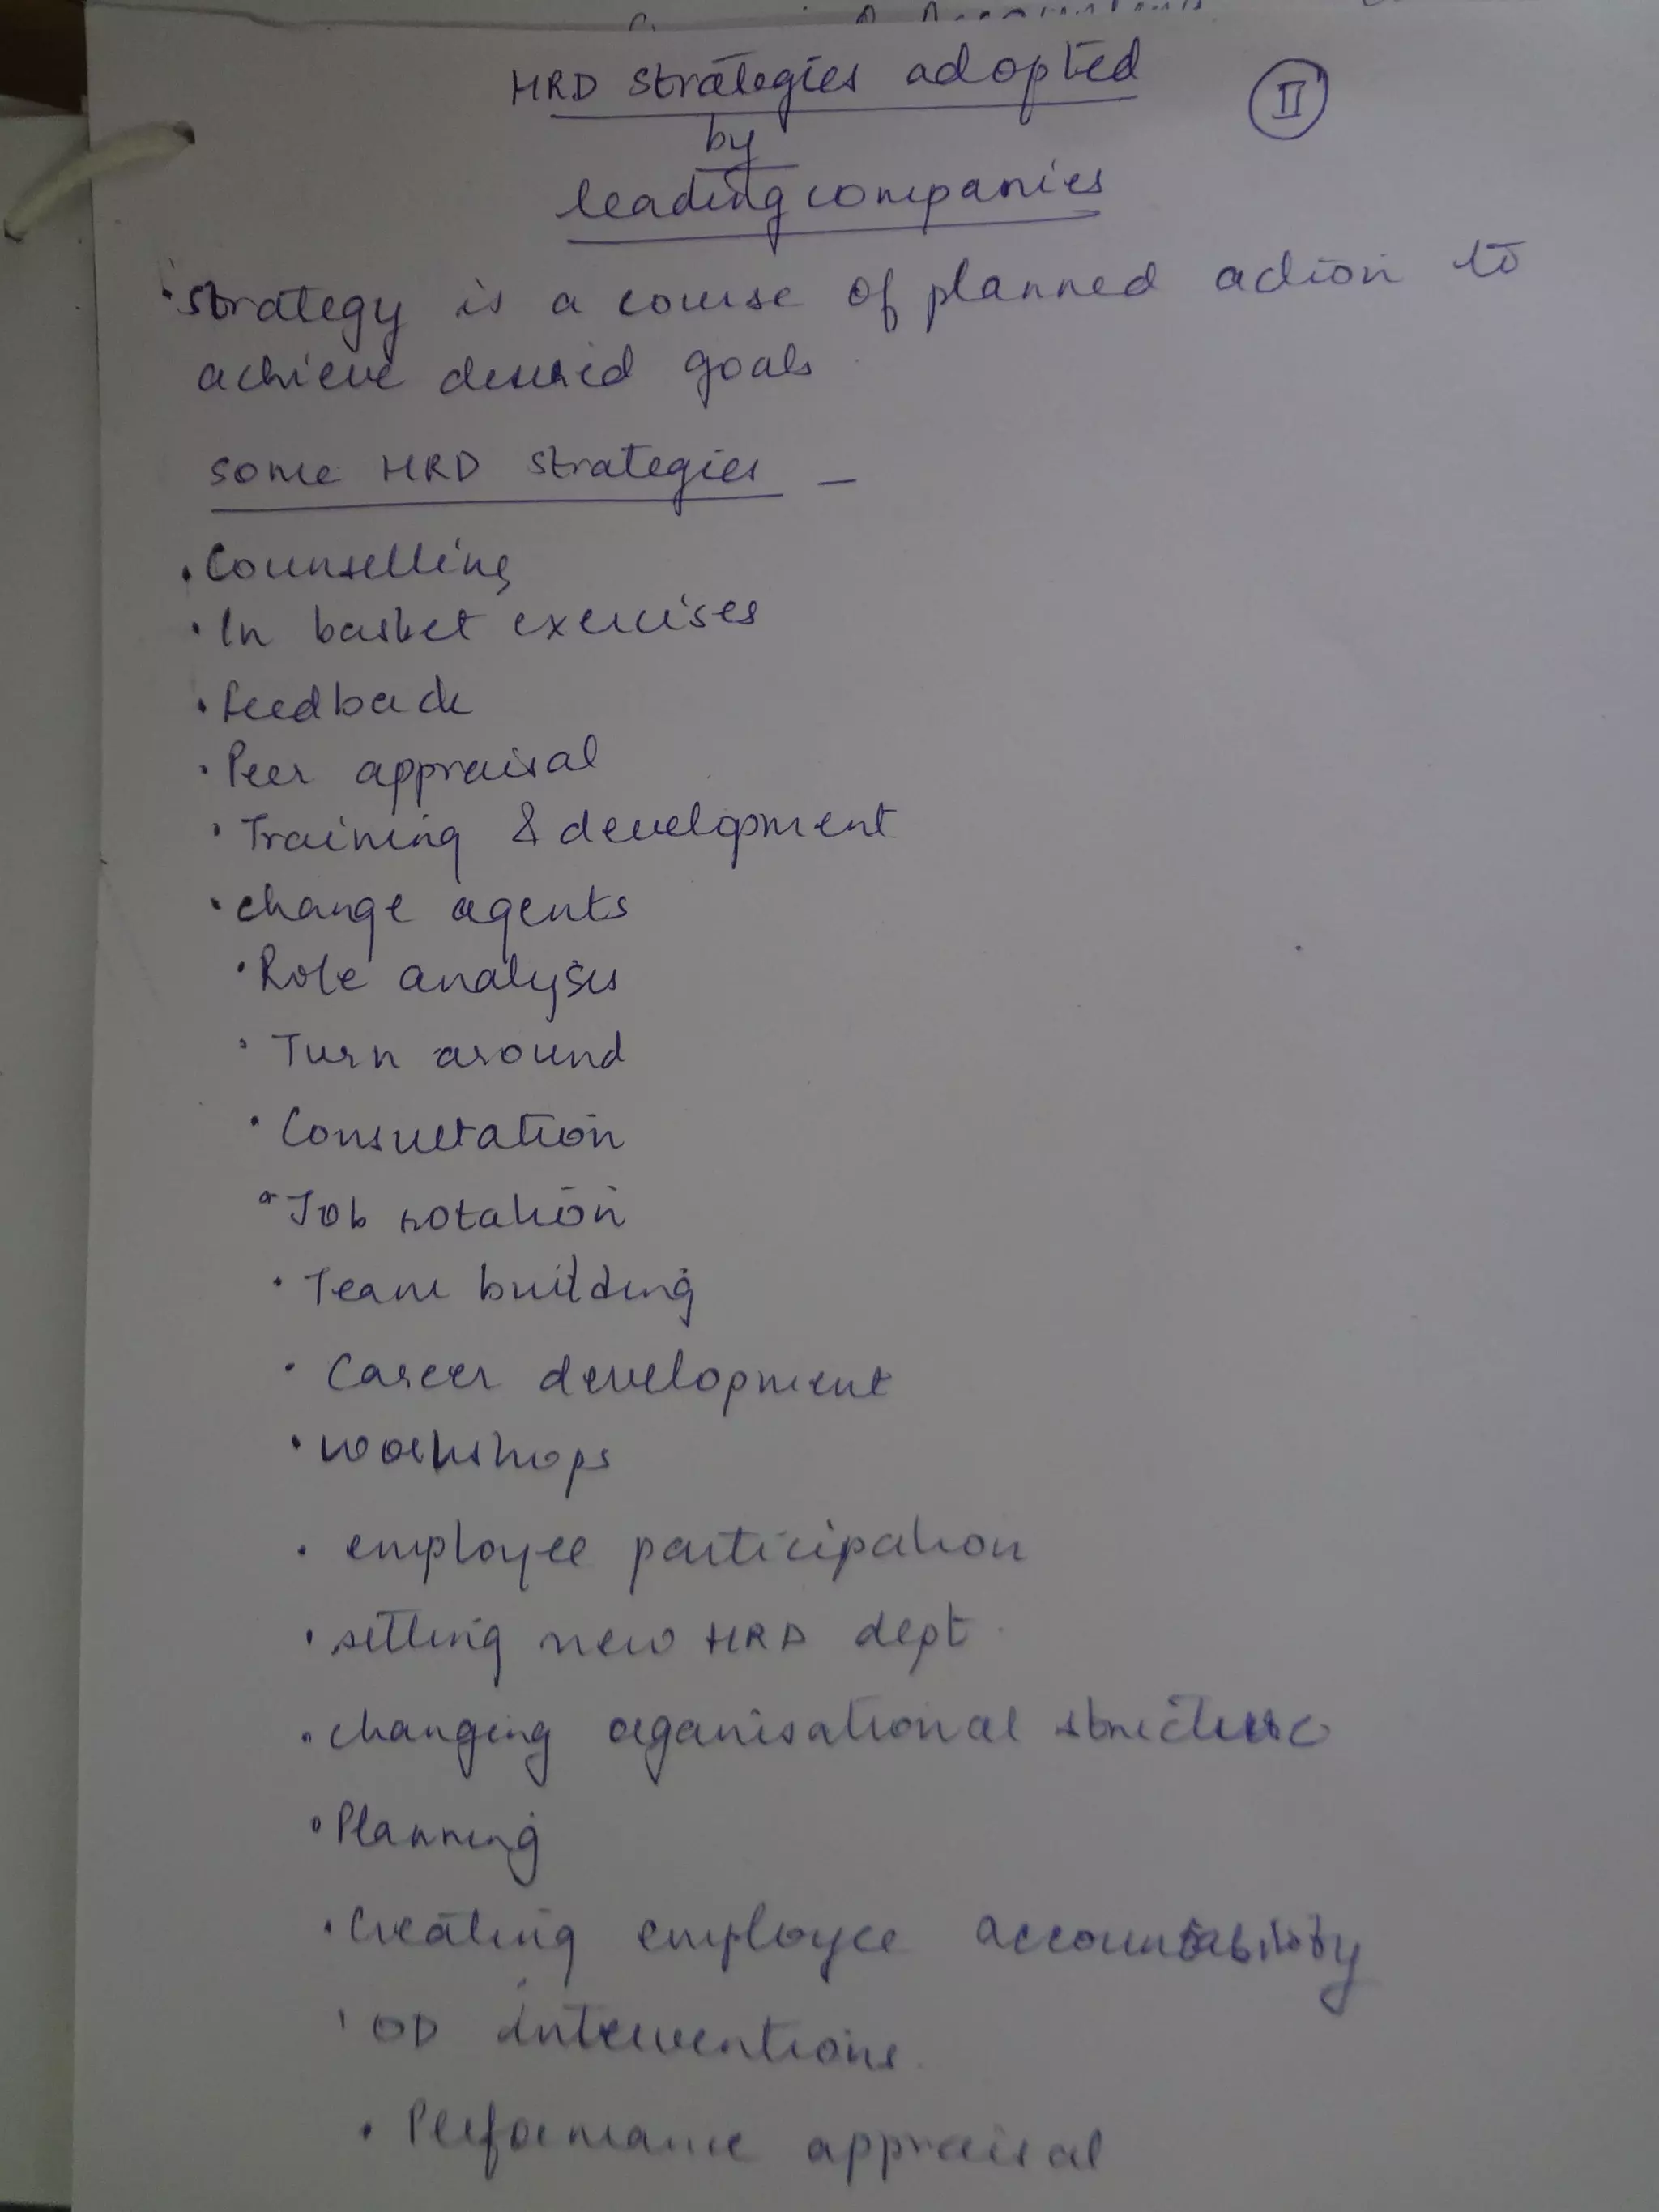 HRD strategies adopted
II
by
leading companies
• strategy is a course of planned action to
achieve desired goals
some HRD strategies –
• Counselling
• In basket exercises
• feedback
• Peer appraisal
• Training & development
• change agents
• Role analysis
• Turn around
• Consultation
• Job rotation
• Team building
• Career development
• workshops
• employee participation
• setting new HRD dept.
• changing organisational structure
• Planning
• Creating employee accountability
• OD interventions
• Performance appraisal